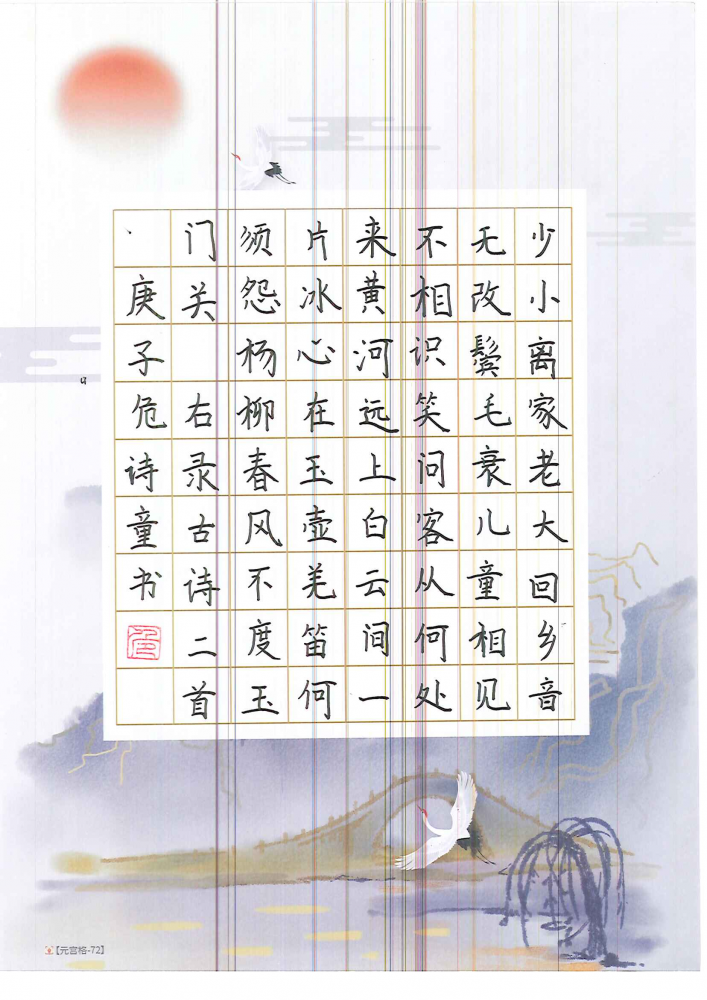 少小离家老大回乡音
无改鬓毛衰儿童相见
不相识笑问客从何处
来黄河远上白云间一
片冰心在玉壶羌笛何
须怨杨柳春风不度玉
门关 右录古诗二首
庚子危诗童书
【元宫格-72】